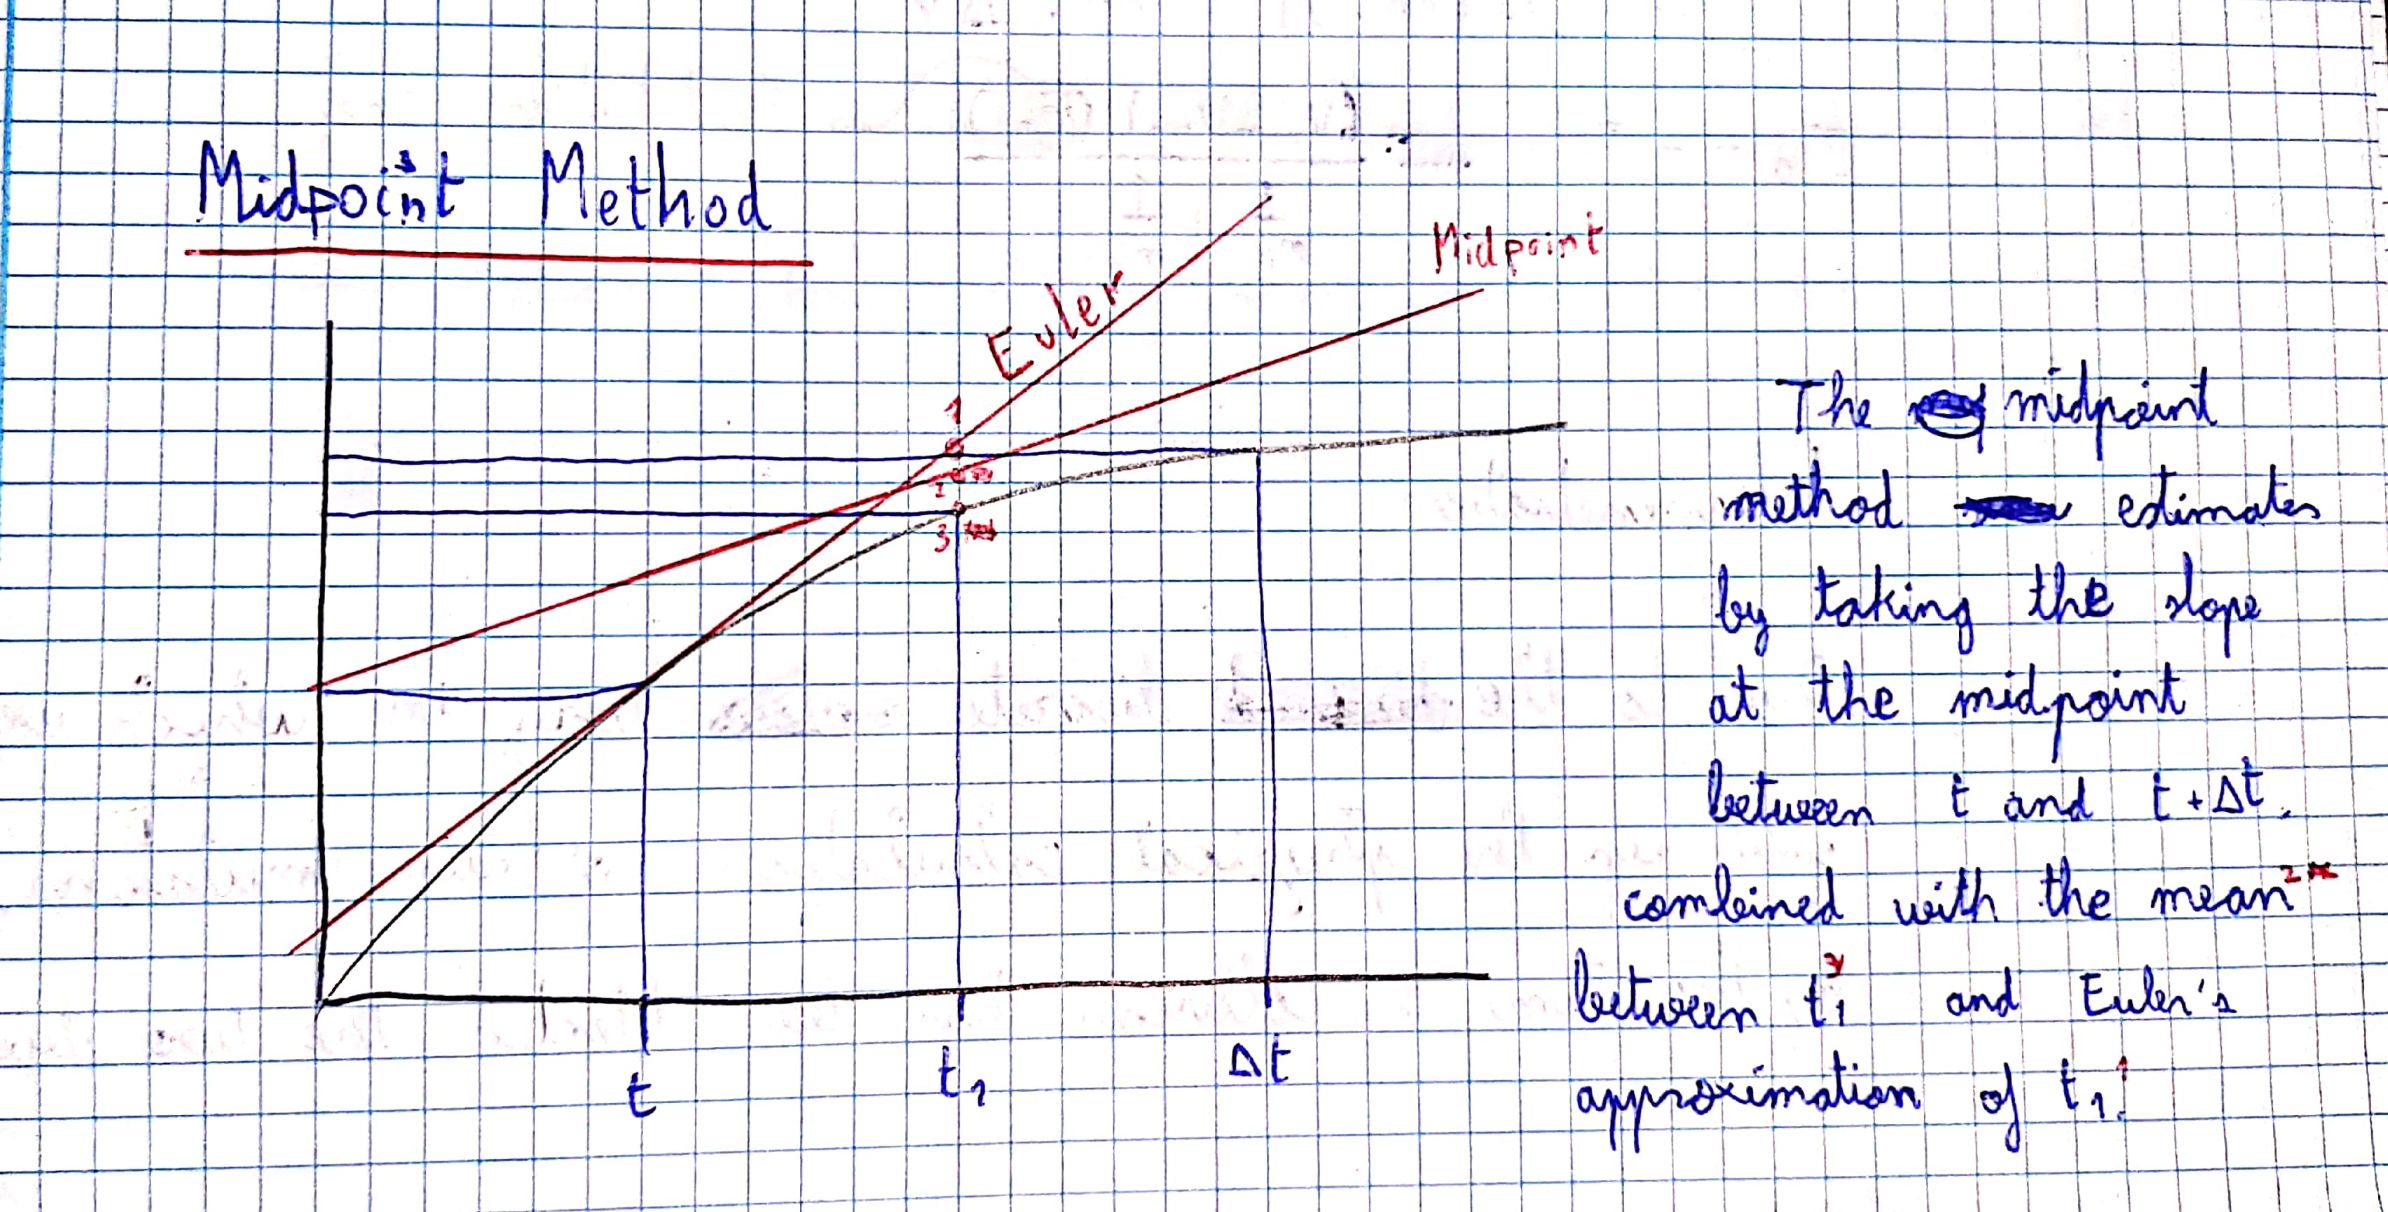 Midpoint Method
Euler
Midpoint
1
2
3
The midpoint
method estimates
by taking the slope
at the midpoint
between t and t + Δt.
combined with the mean²
between t₁³ and Euler's
approximation of t₁¹.
t
t₁
Δt